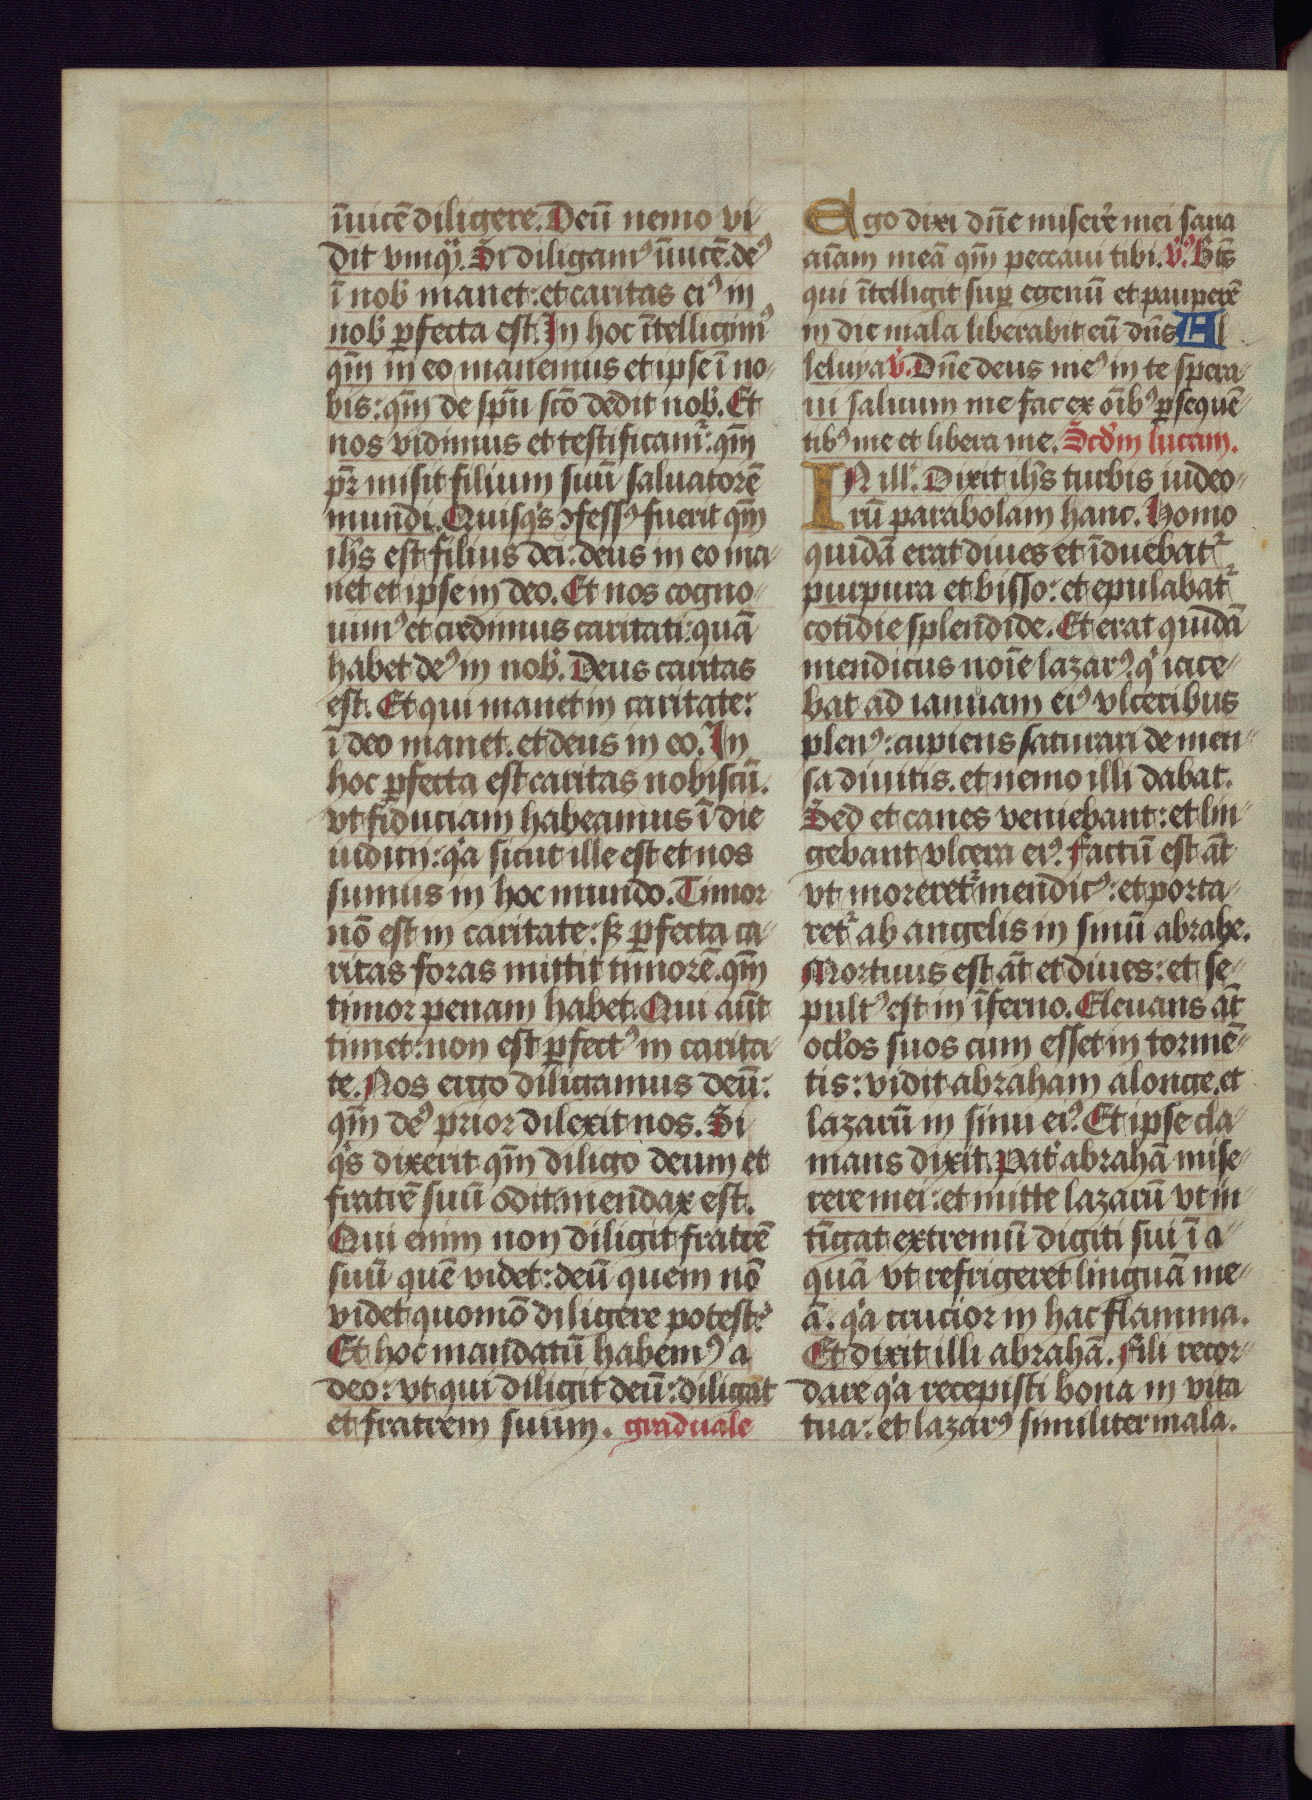 īuicē diligere. Deū nemo vi-
dit vmq̄. Si diligamꝰ īuicē. deꝰ
ī nob̛ manet: et caritas eiꝰ in
nob̛ ꝑfecta est. In hoc ītelligimꝰ
qm̄ in eo manemus et ipse ī no-
bis: qm̄ de spū scō dedit nob̛. Et
nos vidimus et testificamr̛: qm̄
pr̄ misit filium suū saluatorē
mundi. Quisq̛s ꝯfessꝰ fuerit qm̄
ih̄s est filius dei: deus in eo ma-
net et ipse in deo. Et nos cogno-
uimꝰ et credimus caritati: quā
habet deꝰ in nob̛. Deus caritas
est. Et qui manet in caritate:
ī deo manet. et deus in eo. In
hoc ꝑfecta est caritas nobiscū.
vt fiduciam habeamus ī die
iudicii: q̛a sicut ille est et nos
sumus in hoc mundo. Timor
nō est in caritate: sꝫ ꝑfecta ca-
ritas foras mittit timorē. qm̄
timor penam habet. Qui aūt
timet: non est ꝑfectꝰ in carita-
te. Nos ergo diligamus deū:
qm̄ deꝰ prior dilexit nos. Si
q̛s dixerit qm̄ diligo deum et
fratrē suū odit: mendax est.
Qui enim non diligit fratrē
suū quē videt: deū quem nō
videt quomō diligere potest?
Et hoc mandatū habemꝰ a
deo: vt qui diligit deū: diligat
et fratrem suum. graduale
Ego dixi dn̄e miserē mei sana
aīam meā qm̄ peccaui tibi. v̛ꝰ. Bt̄s
qui ītelligit suꝑ egenū et pauperē
in die mala liberabit eū dn̄s Al
leluya v̛. Dn̄e deus meꝰ in te spera-
ui saluum me fac ex oībꝰ ꝑsequē-
tibꝰ me et libera me. Scd̄m lucam.
IN ill̛. Dixit ih̄s turbis iudeo-
rū parabolam hanc. Homo
quidā erat diues et īduebatr̛
purpura et bisso: et epulabatr̛
cotidie splendide. Et erat quidā
mendicus noīe lazarꝰ. q̛ iace-
bat ad ianuam eiꝰ vlceribus
plenꝰ: cupiens saturari de men-
sa diuitis. et nemo illi dabat.
Sed et canes veniebant: et lin-
gebant vlcera eiꝰ. factū est āt
vt moreretr̛ mendicꝰ: et porta-
retr̛ ab angelis in sinū abrahe.
Mortuus est āt et diues: et se-
pultꝰ est in īferno. Eleuans āt
ocl̛os suos cum esset in tormē-
tis: vidit abraham alonge. et
lazarū in sinu eiꝰ. Et ipse cla-
mans dixit. Pat̛ abrahā mise-
rere mei: et mitte lazarū vt in-
tīgat extremū digiti sui ī a-
quā vt refrigeret linguā me-
ā. q̛a crucior in hac flamma.
Et dixit illi abrahā. Fili recor-
dare q̛a recepisti bona in vita
tua: et lazarꝰ similiter mala.